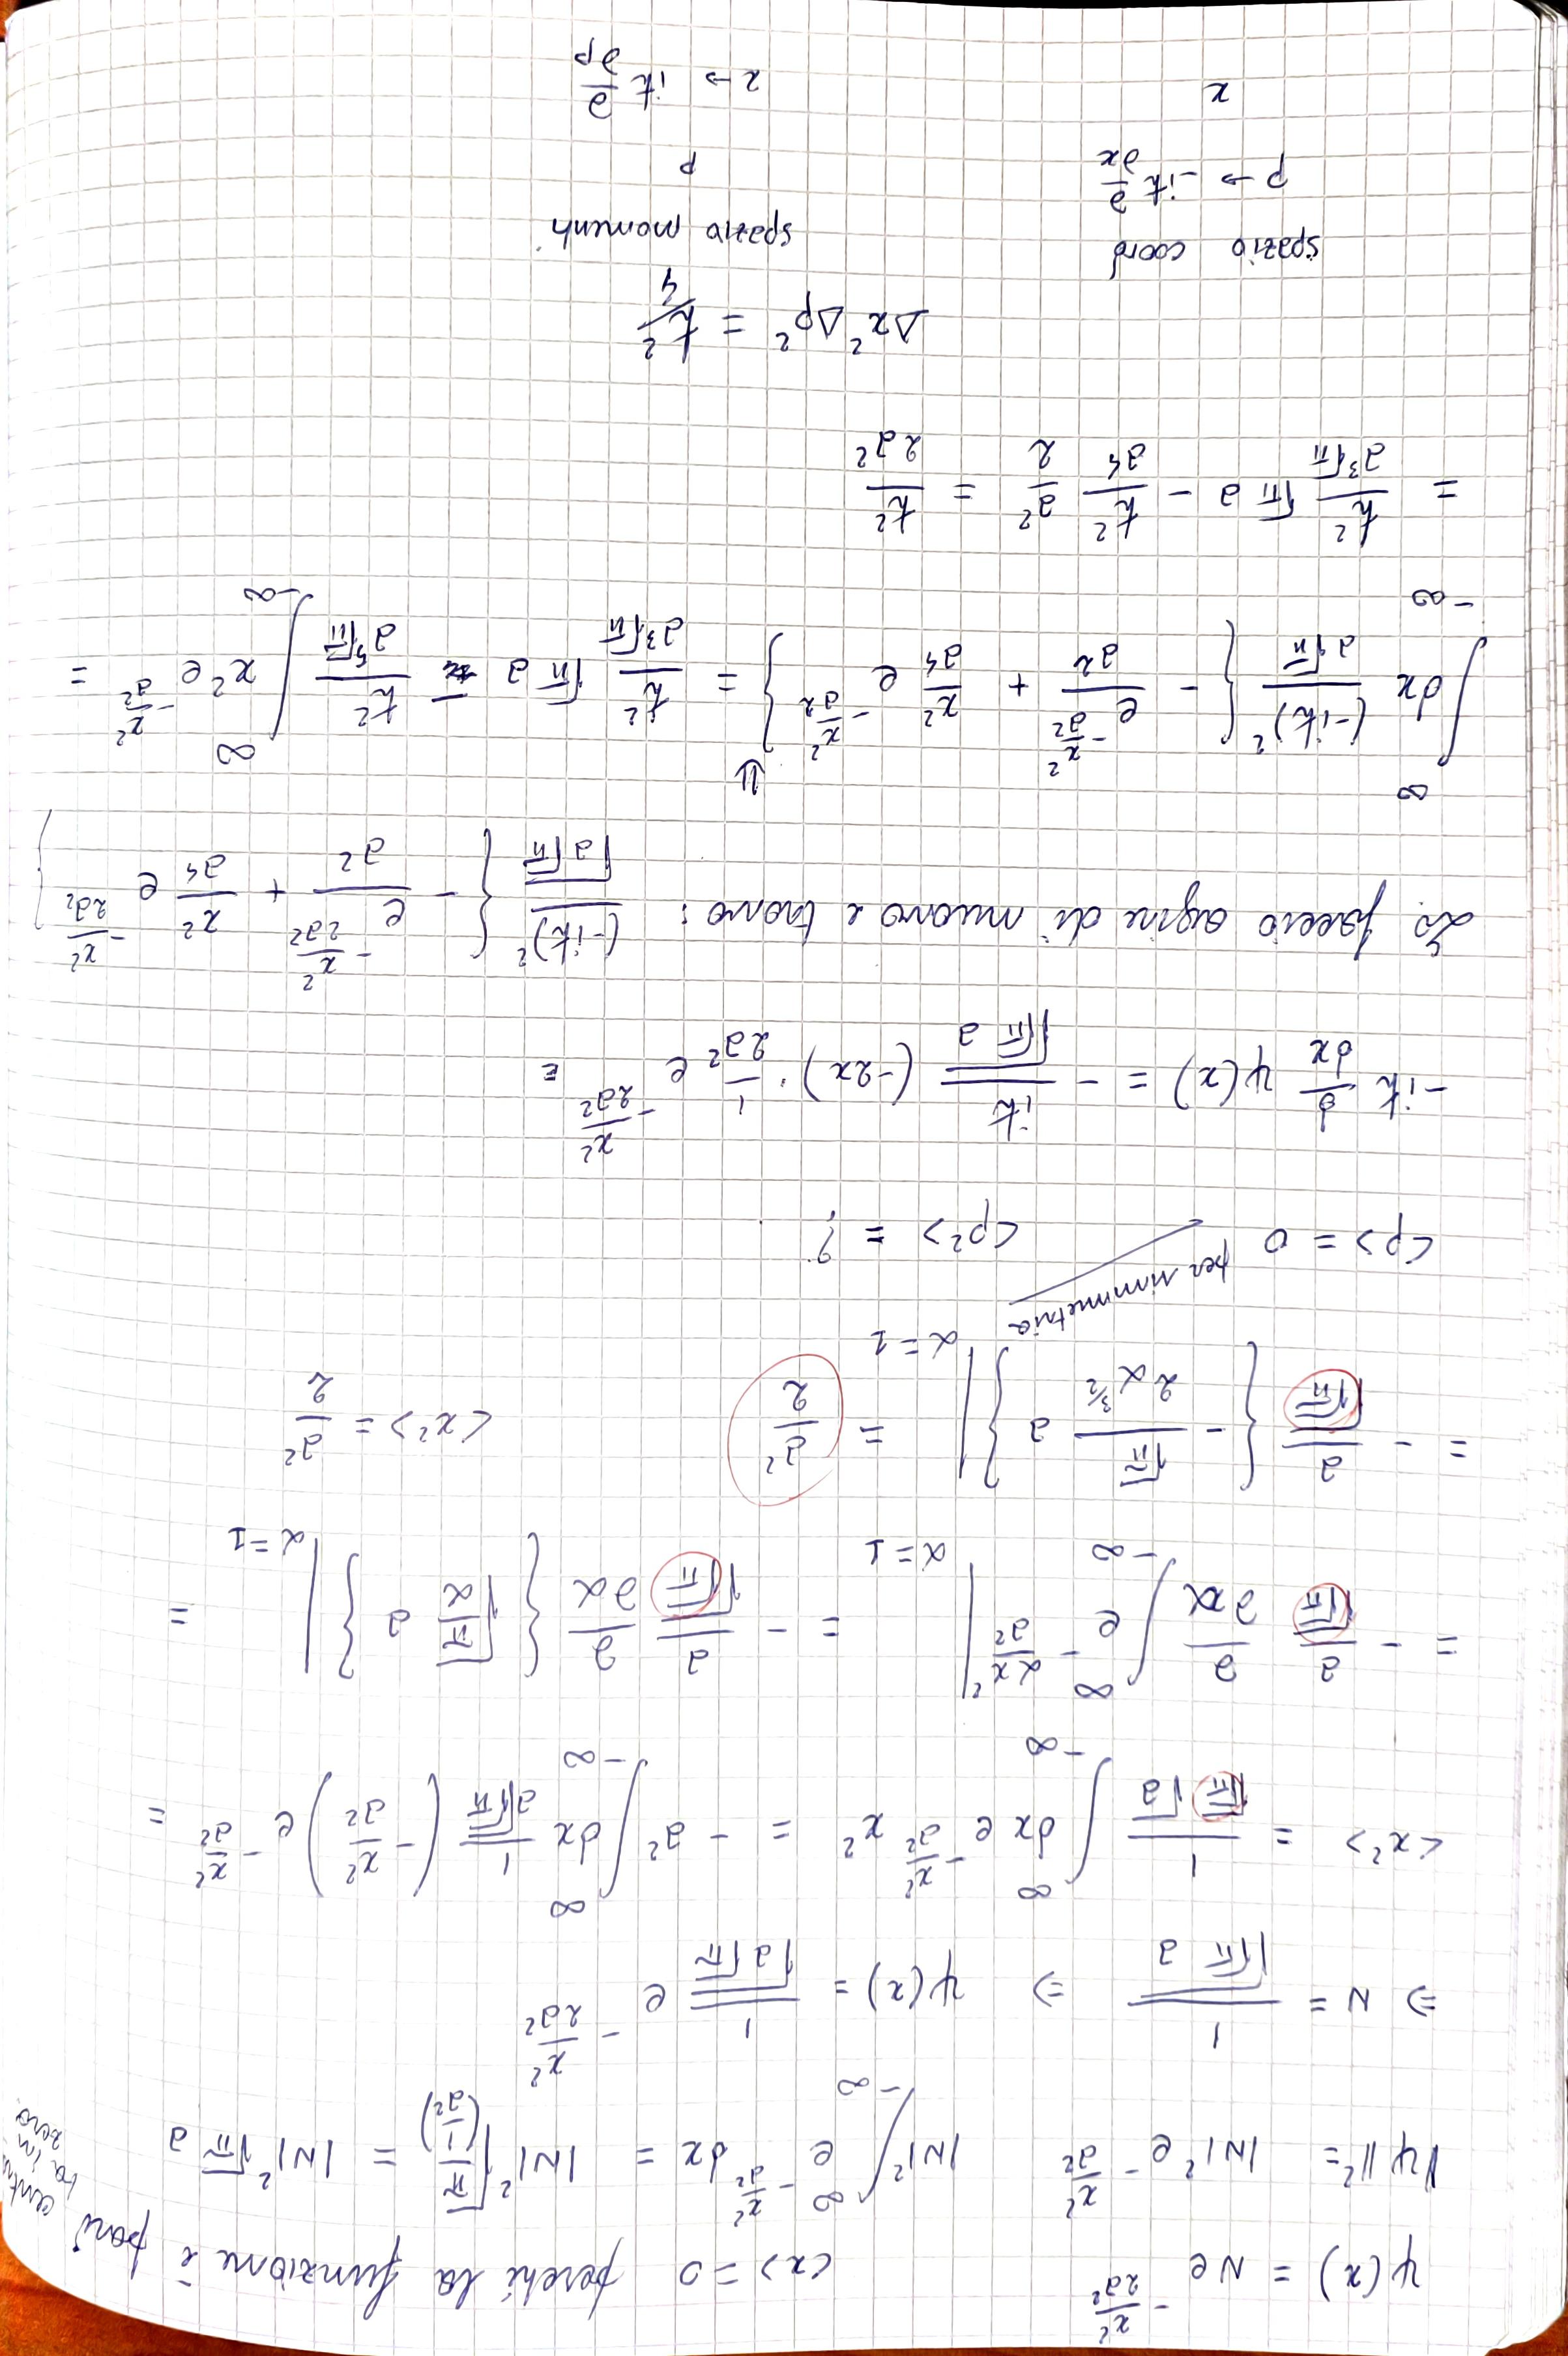 ψ(x) = N e^{-x²/2a²}   <x> = 0 perché la funzione è pari centrata in zero
‖ψ‖² = |N|² e^{-x²/a²}   |N|² ∫_{-∞}^{∞} e^{-x²/a²} dx = |N|² √(π/(1/a²)) = |N|² √π a
⇒ N = 1/√(√π a) ⇒ ψ(x) = 1/√(a√π) e^{-x²/2a²}
<x²> = 1/(√π √a) ∫_{-∞}^{∞} dx e^{-x²/a²} x² = - a² ∫_{-∞}^{∞} dx 1/(a√π) (-x²/a²) e^{-x²/a²} =
= - a/√π ∂/∂α ∫_{-∞}^{∞} e^{-αx²/a²} |_{α=1} = - a/√π ∂/∂α { √(π/α) a } |_{α=1} =
= - a/√π { - √π/(2α^{3/2}) a } |_{α=1} = a²/2   <x²> = a²/2
<p> = 0 per simmetria   <p²> = ?
-iħ d/dx ψ(x) = - iħ/√(√π a) (-2x) · 1/2a² e^{-x²/2a²} =
Lo faccio agire di nuovo e trovo: (-iħ)²/√(a√π) { - e^{-x²/2a²}/a² + x²/a⁴ e^{-x²/2a²} }
⇓
∫_{-∞}^{∞} dx (-iħ)²/(a√π) { - e^{-x²/a²}/a² + x²/a⁴ e^{-x²/a²} } = ħ²/(a³√π) √π a - ħ²/(a⁵√π) ∫_{-∞}^{∞} x² e^{-x²/a²} =
= ħ²/(a³√π) √π a - ħ²/a⁴ a²/2 = ħ²/2a²
Δx² Δp² = ħ²/4
spazio coord   spazio momenti
p → -iħ ∂/∂x   p
x   x → iħ ∂/∂p